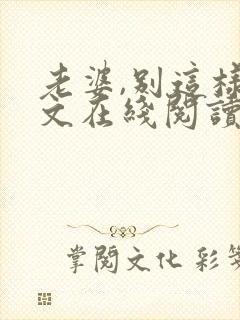 老婆,别這樣
文在綫閱讀
掌閱文化 彩笺